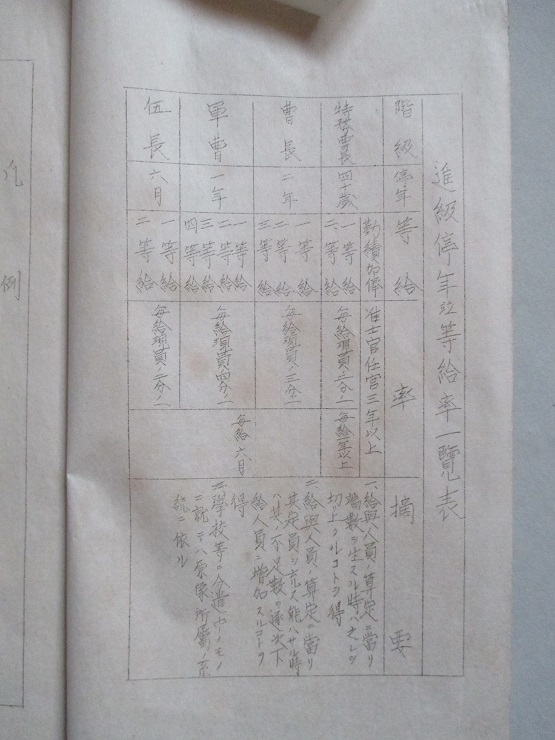 進級停年竝等給率一覽表
階級
停年
等給
率
摘要
特務曹長
四十歲
勤續加俸
一等給
二等給
准士官任官三年以上
每給現員ノ二分ノ一
每給一年以上
曹長
二年
一等給
二等給
三等給
每給現員ノ三分ノ一
軍曹
一年
一等給
二等給
三等給
四等給
每給現員ノ四分ノ一
每給六月
伍長
六月
一等給
二等給
每給現員ノ二分ノ一
一、給與人員ノ算定ニ當リ
端數ヲ生スル時ハ之レヲ
切上クルコトヲ得
二給與人員ノ算定ニ當リ
其定員ヲ充ス能ハサル時
ハ其ノ不足數ヲ逐次下
給人員ニ增加スルコトヲ
得
三學校等ニ分遣中ノモノ
ニ就テハ原隊所屬ノ系
統ニ依ル
凡例